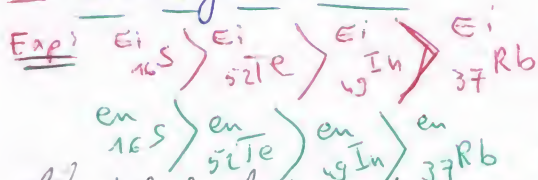 Exp: Ei ₁₆S > Ei ₅₂Te > Ei ₄₉In > Ei ₃₇Rb
en ₁₆S > en ₅₂Te > en ₄₉In > en ₃₇Rb